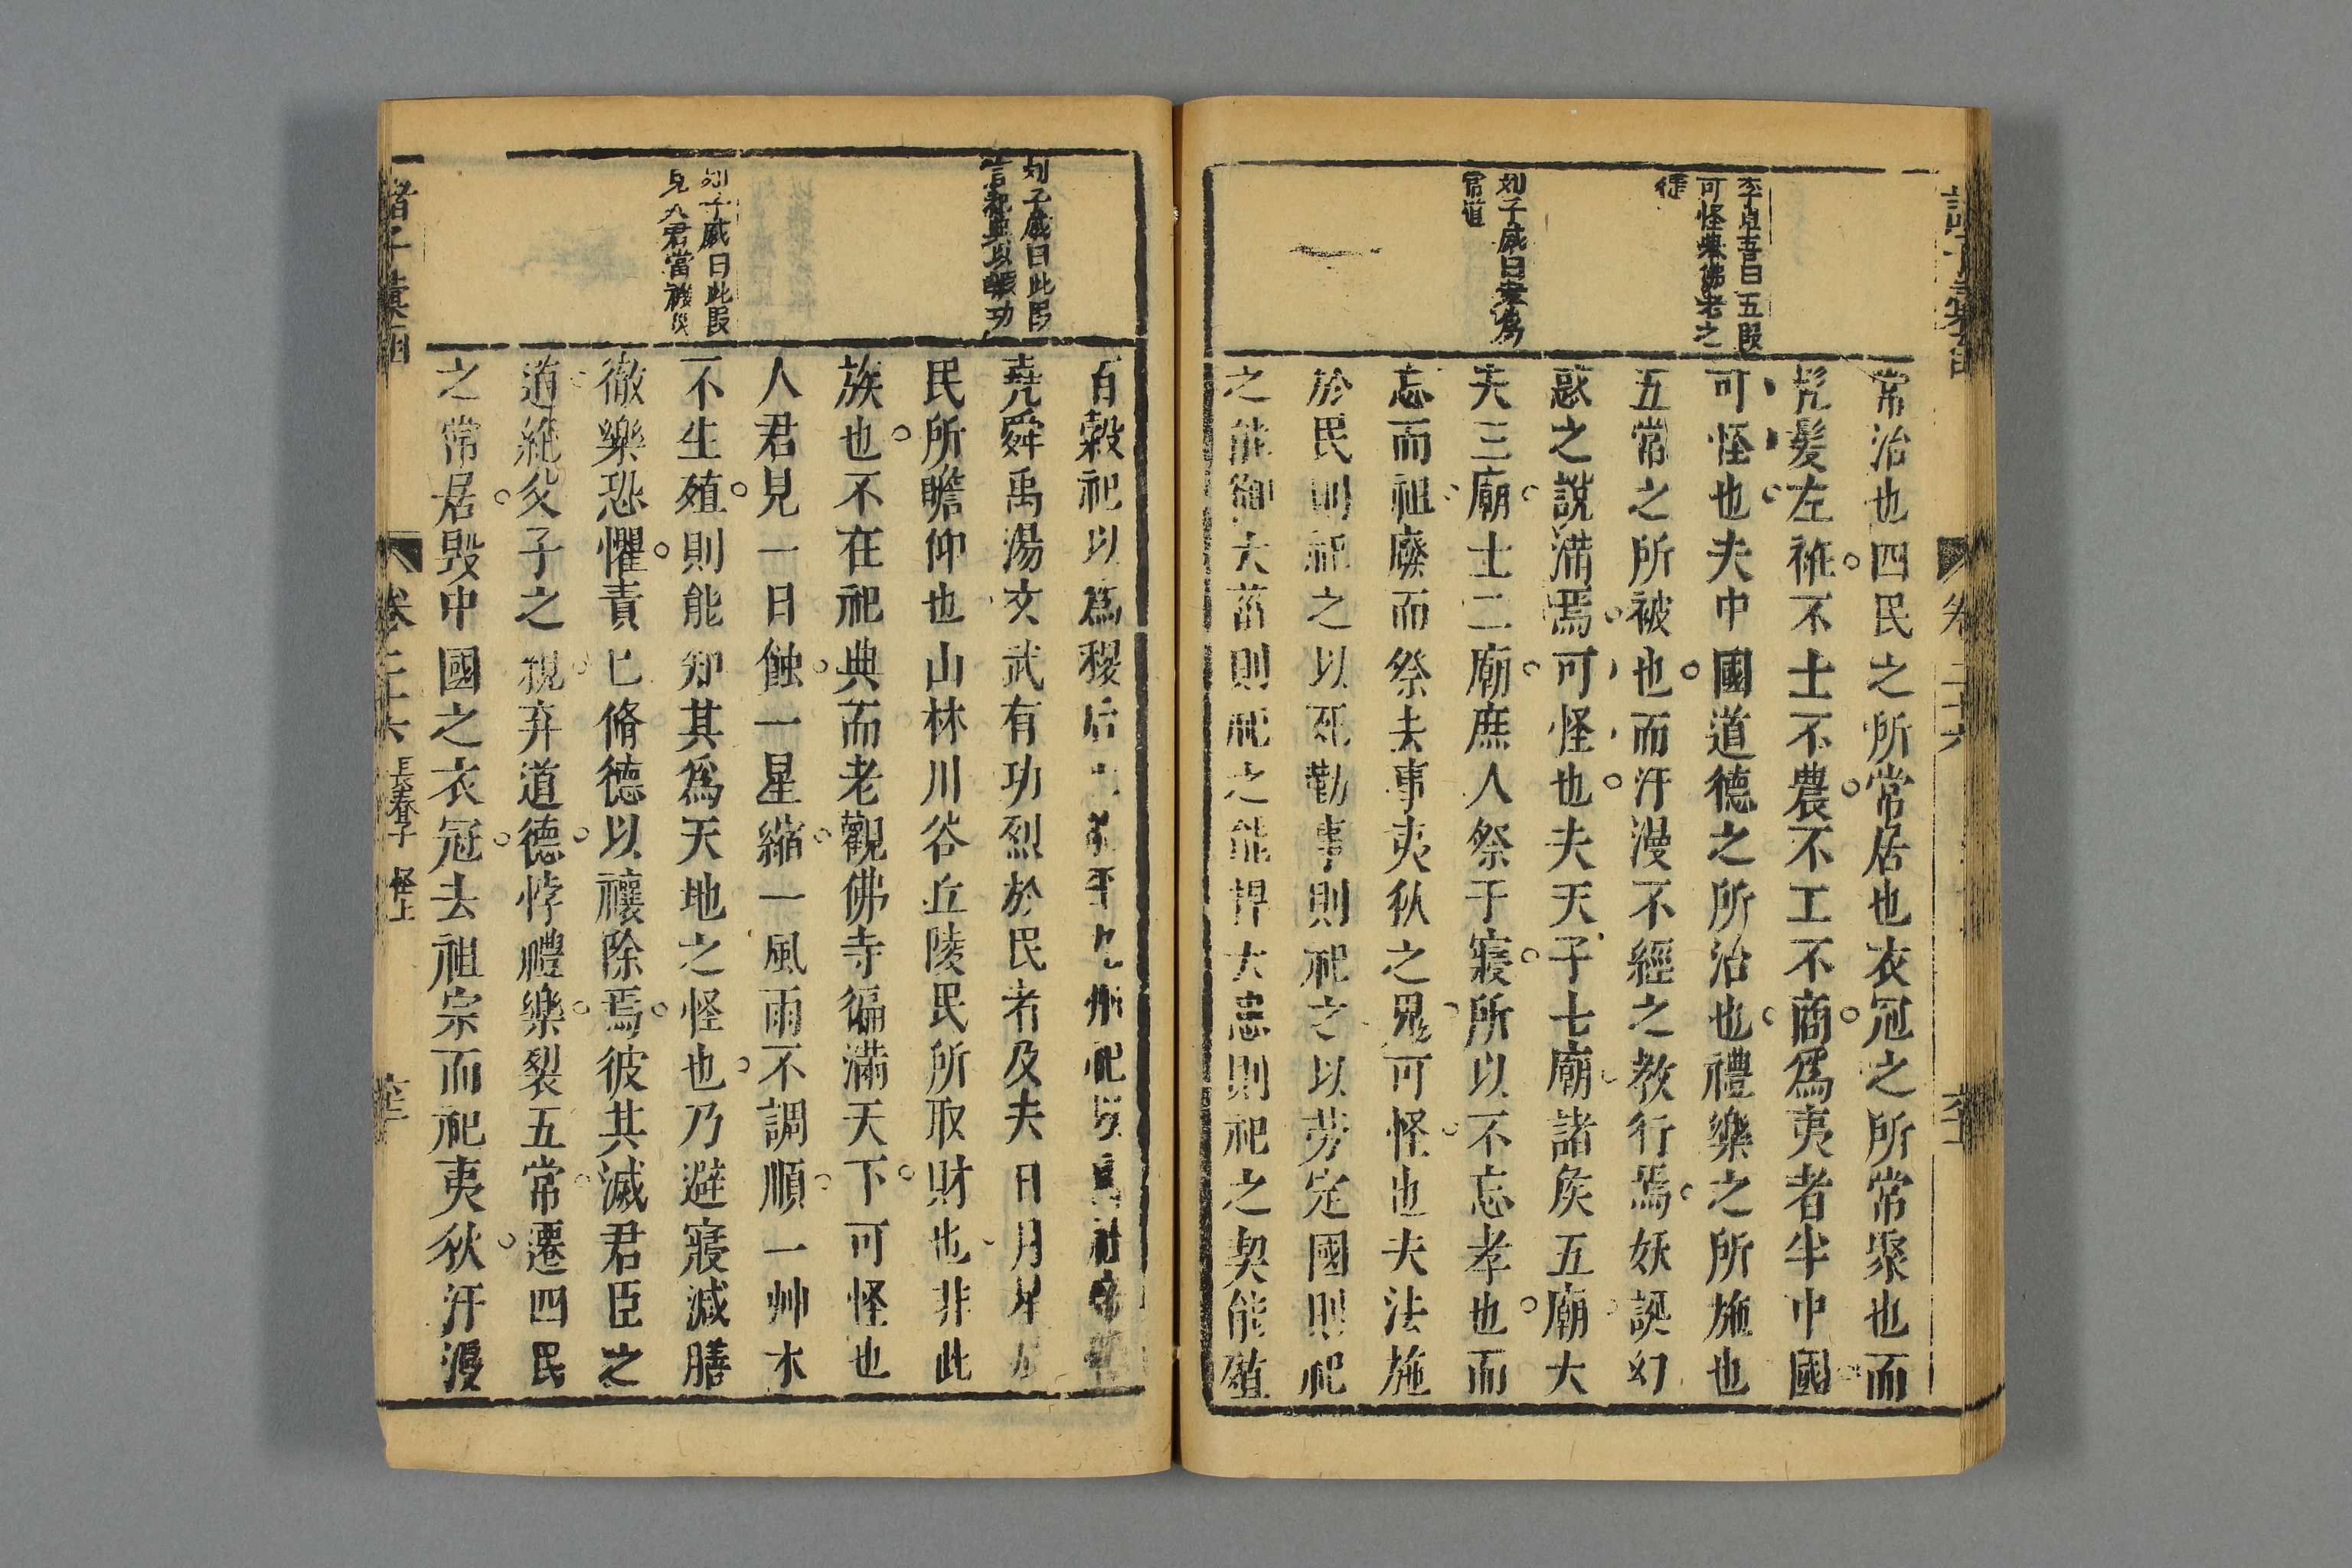 李卓吾曰五段
可怪柴佛老之
徒
刘子威曰孝為
常道
常治也四民之所常居也衣冠之所常聚也而
髡髮左袵不士不農不工不商為夷者半中國
可怪也夫中國道德之所治也禮樂之所施也
五常之所被也而汗漫不經之教行焉妖誕幻
惑之說滿焉可怪也夫天子七廟諸矦五廟大
夫三廟士二廟庶人祭于寢所以不忘孝也而
忘而祖廢而祭去事夷狄之鬼可怪也夫法施
於民則祀之以死勤事則祀之以勞定國則祀
之能御大菑則祀之能捍大患則祀之契能殖
卷二十六
刘子威曰此段
言祀典以報功
刘子威曰此段
見人君當禨災
百穀祀以為稷后 平九州祀以為社
堯舜禹湯文武有功烈於民者及夫日月星辰
民所瞻仰也山林川谷丘陵民所取財也非此
族也不在祀典而老觀佛寺徧滿天下可怪也
人君見一日蝕一星縮一風雨不調順一艸木
不生殖則能知其為天地之怪也乃避寢減膳
徹樂恐懼責已脩德以禳除焉彼其滅君臣之
道絕父子之親弃道德悖禮樂裂五常遷四民
之常居毁中國之衣冠去祖宗而祀夷狄汗漫
諸子彙函 卷二十六 長春子 怪上